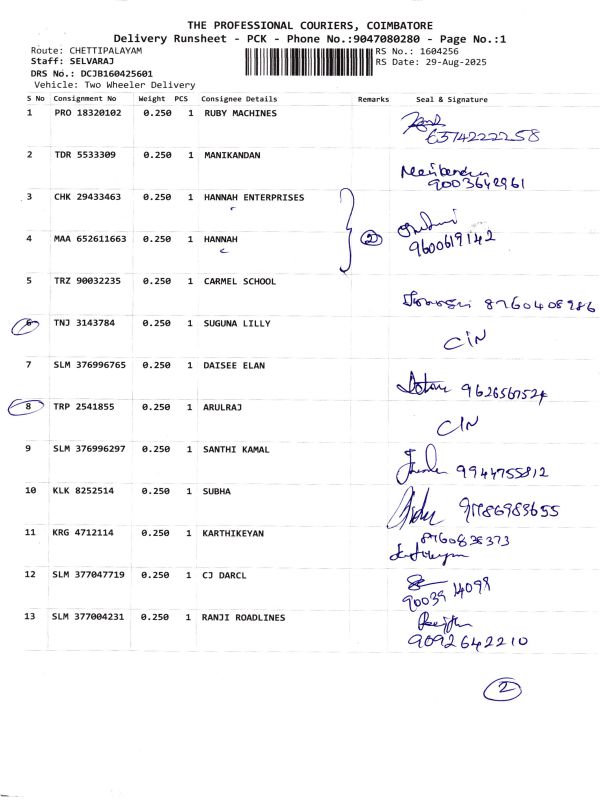 THE PROFESSIONAL COURIERS, COIMBATORE
Delivery Runsheet - PCK - Phone No.:9047080280 - Page No.:1
Route: CHETTIPALAYAM RS No.: 1604256
Staff: SELVARAJ RS Date: 29-Aug-2025
DRS No.: DCJB160425601
Vehicle: Two Wheeler Delivery
S No Consignment No Weight PCS Consignee Details Remarks Seal & Signature
1 PRO 18320102 0.250 1 RUBY MACHINES
6374222258
2 TDR 5533309 0.250 1 MANIKANDAN
Manikandan
9003642961
3 CHK 29433463 0.250 1 HANNAH ENTERPRISES
2
4 MAA 652611663 0.250 1 HANNAH
9600619142
5 TRZ 90032235 0.250 1 CARMEL SCHOOL
8760408986
6 TNJ 3143784 0.250 1 SUGUNA LILLY
C/N
7 SLM 376996765 0.250 1 DAISEE ELAN
9626567524
8 TRP 2541855 0.250 1 ARULRAJ
C/N
9 SLM 376996297 0.250 1 SANTHI KAMAL
9944755812
10 KLK 8252514 0.250 1 SUBHA
11 KRG 4712114 0.250 1 KARTHIKEYAN
8760838373
12 SLM 377047719 0.250 1 CJ DARCL
13 SLM 377004231 0.250 1 RANJI ROADLINES
9092642210
2